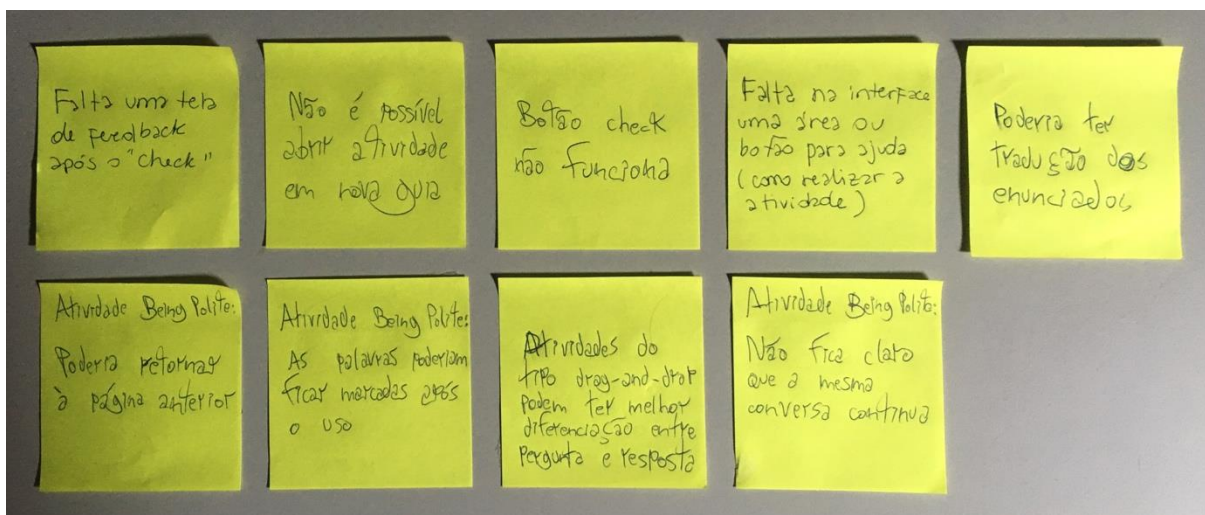 Falta uma tela
de feedback
após o "check"
Não é possível
abrir atividade
em nova guia
Botão check
não funciona
Falta na interface
uma área ou
botão para ajuda
(como realizar a
atividade)
Poderia ter
tradução dos
enunciados
Atividade Being Polite:
Poderia retornar
à página anterior
Atividade Being Polite:
As palavras poderiam
ficar marcadas após
o uso
Atividades do
tipo drag-and-drop
podem ter melhor
diferenciação entre
pergunta e resposta
Atividade Being Polite:
Não fica claro
que a mesma
conversa continua